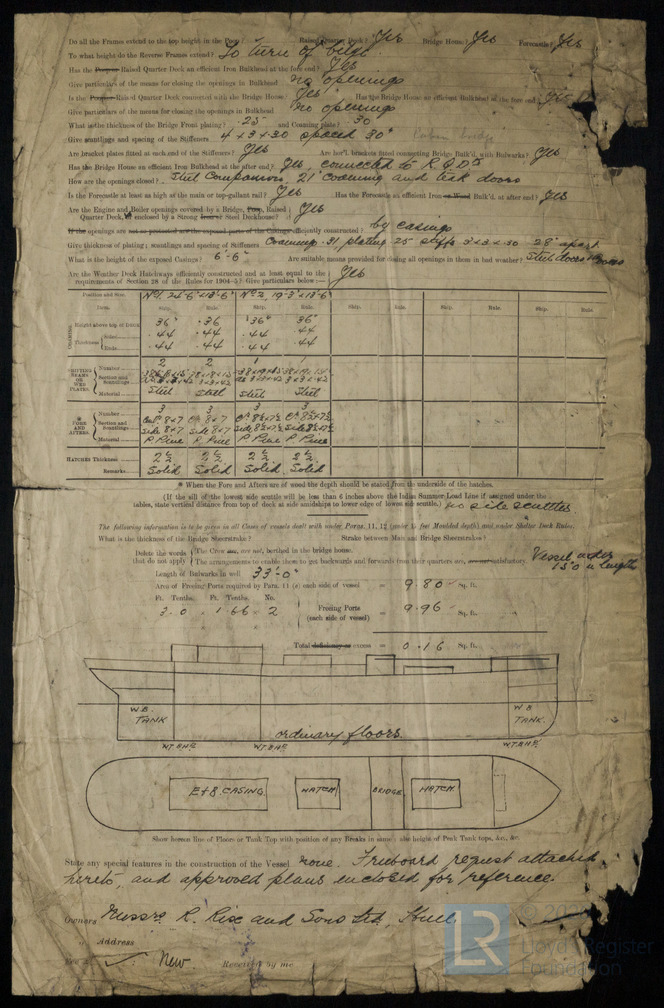 Do all the Frames extend to the top height in the Poop? Raised Quarter Deck? Yes Bridge House? Yes Forecastle? Yes
To what height do the Reverse Frames extend? To turn of bilge
Has the Poop or Raised Quarter Deck an efficient Iron Bulkhead at the fore end? Yes
Give particulars of the means for closing the openings in Bulkhead no openings
Is the Poop or Raised Quarter Deck connected with the Bridge House? Yes Has the Bridge House an efficient Bulkhead at the fore end? Yes
Give particulars of the means for closing the openings in Bulkhead no openings
What is the thickness of the Bridge Front plating? ·25 and Coaming plate? ·30
Give scantlings and spacing of the Stiffeners 4 × 3 × ·30 spaced 30"
Are bracket plates fitted at each end of the Stiffeners? Yes Are hor'l. brackets fitted connecting Bridge Bulk'd. with Bulwarks? Yes
Has the Bridge House an efficient Iron Bulkhead at the after end? Yes, connected to R Q D
How are the openings closed? Steel Companions, 21" coaming and teak doors
Is the Forecastle at least as high as the main or top-gallant rail? Yes Has the Forecastle an efficient Iron or Wood Bulk'd. at after end? Yes
Are the Engine and Boiler openings covered by a Bridge, Poop, Raised Quarter Deck, or enclosed by a Strong Iron or Steel Deckhouse? Yes
If the openings are not so protected are the exposed parts of the Casings efficiently constructed? by casings
Give thickness of plating; scantlings and spacing of Stiffeners Coaming ·31 plating ·25 stiffs 3×3×·30 28" apart
What is the height of the exposed Casings? 6'-6" Are suitable means provided for closing all openings in them in bad weather? Steel doors
Are the Weather Deck Hatchways efficiently constructed and at least equal to the requirements of Section 28 of the Rules for 1904-5? Give particulars below:— Yes
Position and Size. No 1. 24'-6" × 13'-6" No 2. 19'-3" × 13'-6"
Item. Ship. Rule. Ship. Rule. Ship. Rule. Ship. Rule. Ship. Rule.
COAMING Height above top of Deck 36" ·36 36" 36"
Thickness Sides ·44 ·44 ·44 ·44
Ends ·44 ·44 ·44 ·44
SHIFTING BEAMS OR WEB PLATES. Number 2 2 1 1
Section and Scantlings
Material Steel Steel Steel Steel
* FORE AND AFTERS. Number 3 3 3 3
Section and Scantlings Cen 8×7 8×7
Side 8×7 Side 8×7
Material P. Pine P. Pine P. Pine P. Pine
HATCHES Thickness 2½ 2½ 2½ 2½
Remarks Solid Solid Solid Solid
* When the Fore and Afters are of wood the depth should be stated from the underside of the hatches.
(If the sill of the lowest side scuttle will be less than 6 inches above the Indian Summer Load Line if assigned under the
tables, state vertical distance from top of deck at side amidships to lower edge of lowest side scuttle.) no side scuttles
The following information is to be given in all Cases of vessels dealt with under Paras. 11, 12 (under 15 feet Moulded depth) and under Shelter Deck Rules.
What is the thickness of the Bridge Sheerstrake? Strake between Main and Bridge Sheerstrakes?
Delete the words that do not apply The Crew are, are not, berthed in the bridge house.
The arrangements to enable them to get backwards and forwards from their quarters are, are not satisfactory. Vessel under 150' in length
Length of Bulwarks in well 33'-0"
Area of Freeing Ports required by Para. 11 (e) each side of vessel = 9.80 Sq. ft.
Ft. Tenths. Ft. Tenths. No.
3.0 × 1.66 × 2 Freeing Ports (each side of vessel) = 9.96 Sq. ft.
Total deficiency or excess = 0.16 Sq. ft.
W.B. TANK
W.B. TANK.
ordinary floors.
W T BHD W T BHD W T BHD
E & B CASING HATCH BRIDGE HATCH
Show hereon line of Floors or Tank Top with position of any Breaks in same; also height of Peak Tank tops, &c., &c.
State any special features in the construction of the Vessel none. Freeboard request attached
hereto, and approved plans enclosed for reference.
Owners Messrs R. Rix and Sons Ltd, Hull
Address
Fee New Received by me
LR
Lloyd's Register
Foundation